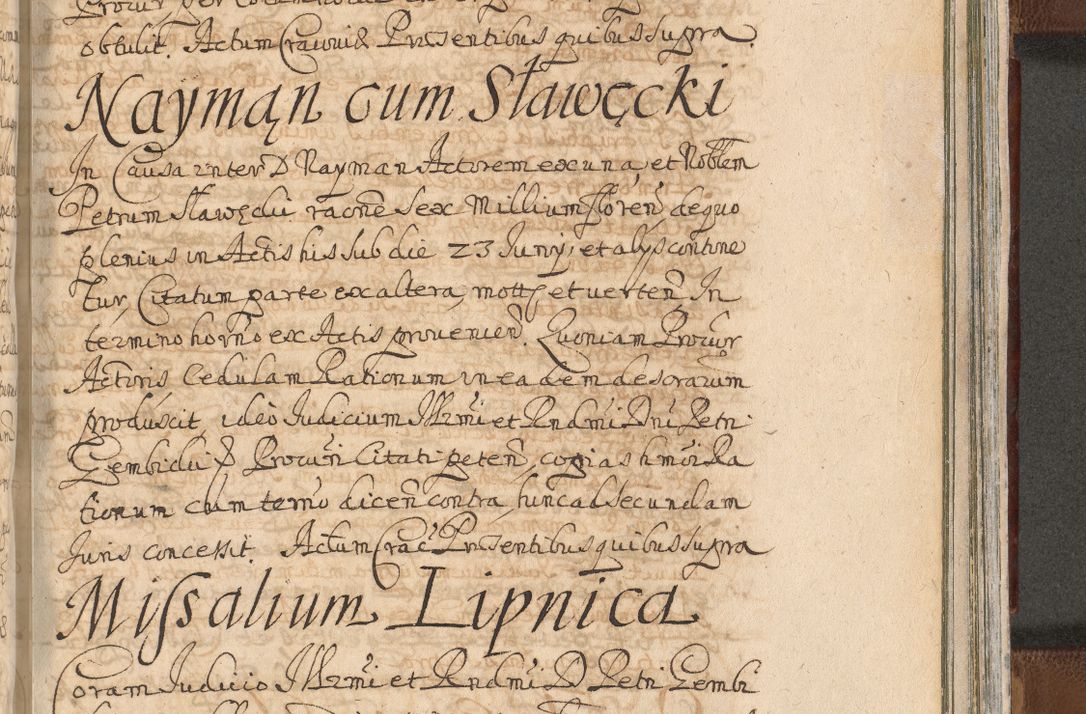 obtulit. Actum Cracouiæ Præsentibus quibus supra.
Nayman cum Sławęcki
In Causa inter D Nayman Actorem ex una, et Nobłem
Petrum Sławęcki raone sex Millium floren de quo
plenius in Actis his sub die 23 Junij, et alys contine
tur, Citatum parte ex altera, mott et uerten, In
termino horno ex Actis prouenien. Quoniam Procur
Actoris Cedulam Rationum in eadem desoratum
produxit, ideo Judicium Illrmi et Rndmi Dni Petri
Gembicki P Procuri Citati peten, copias hmoi Ra
tionum cum termo dicen contra, hunc ad secundam
Juris concessit. Actum Crac Præsentibus quibus supra
Missalium Lipnica
Coram Judicio Illrmi et Rndmi D Petri Gembi